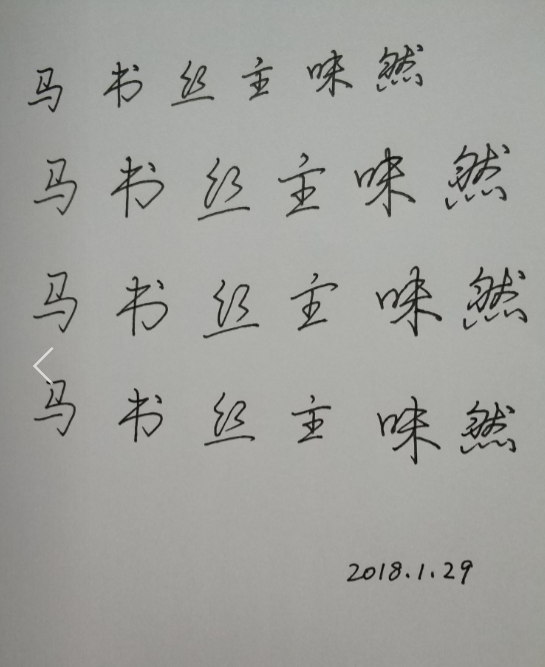 马书丝主味然
马书丝主味然
马书丝主味然
马书丝主味然
2018.1.29